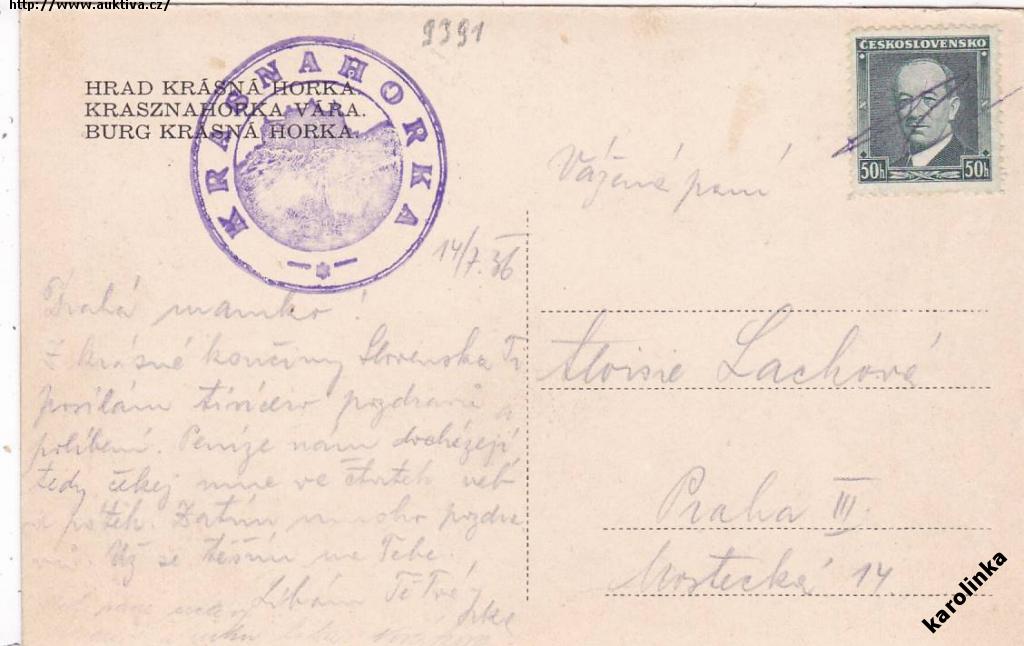 http://www.auktiva.cz/
9391
HRAD KRÁSNÁ HORKA.
KRASZNAHORKA VÁRA.
BURG KRÁSNÁ HORKA.
KRASNAHORKA
ČESKOSLOVENSKO
50h 50h
Vážená paní
14/7.36
Drahá mamko!
Z krásné končiny Slovenska Ti
posílám tisícero pozdravů a
políbení. Peníze nám docházejí
tedy čekej mne ve čtvrtek neb
v pátek. Zatím mnoho pozdra
vů. Už se těším na Tebe.
Líbám Tě Tvá
Aloisie Lachová
Praha III.
Mostecká 14.
karolinka